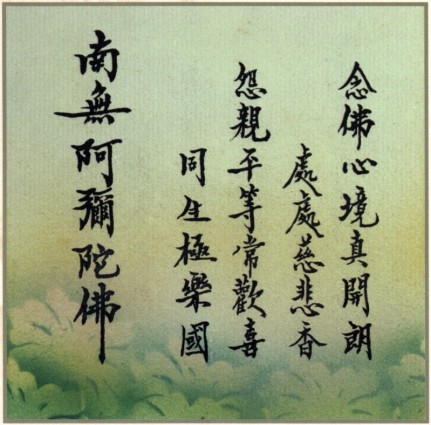 念佛心境真開朗
處處慈悲香
怨親平等常歡喜
同生極樂國
南無阿彌陀佛